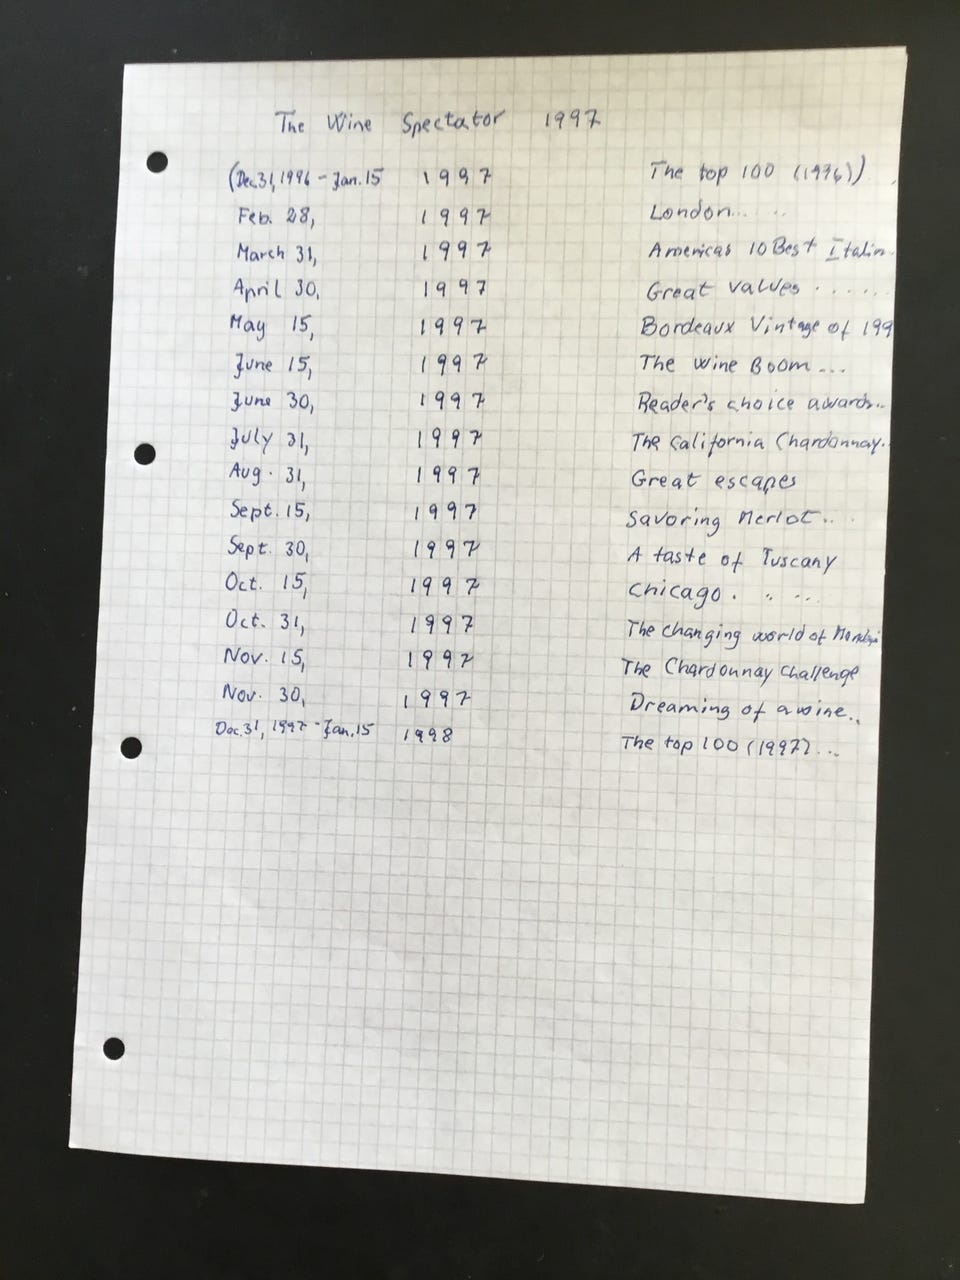 The Wine Spectator 1997
(Dec.31,1996 - Jan.15 1997 The top 100 (1996))
Feb. 28, 1997 London.....
March 31, 1997 Americas 10 Best Italin.
April 30, 1997 Great values ......
May 15, 1997 Bordeaux Vintage of 199
June 15, 1997 The wine Boom...
June 30, 1997 Reader's choice awards..
July 31, 1997 The California Chardonnay..
Aug. 31, 1997 Great escapes
Sept. 15, 1997 Savoring Merlot...
Sept. 30, 1997 A taste of Tuscany
Oct. 15, 1997 Chicago. . ...
Oct. 31, 1997 The changing world of
Nov. 15, 1997 The Chardonnay Challenge
Nov. 30, 1997 Dreaming of a wine..
Dec.31, 1997 - Jan.15 1998 The top 100 (1997)...